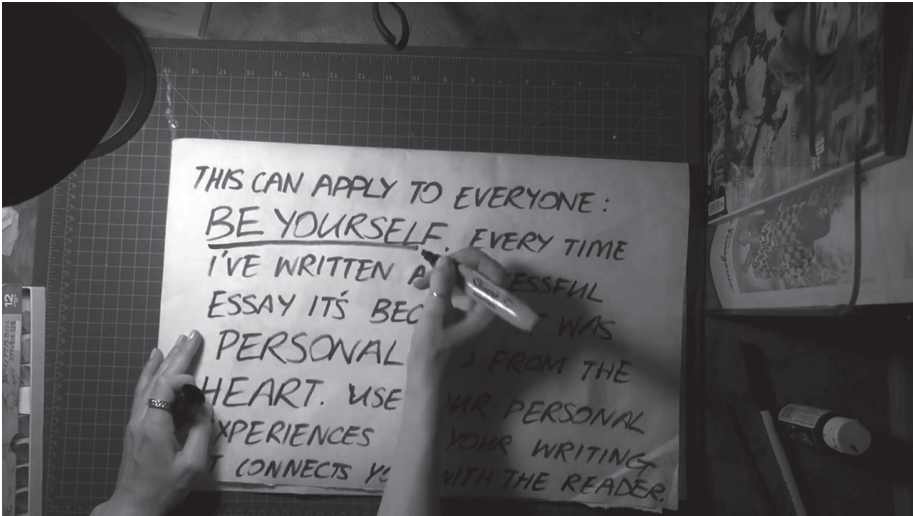 THIS CAN APPLY TO EVERYONE:
BE YOURSELF. EVERY TIME
I'VE WRITTEN A ESSFUL
ESSAY IT'S BEC WAS
PERSONAL FROM THE
HEART. USE UR PERSONAL
XPERIENCES YOUR WRITING
T CONNECTS YO WITH THE READER.